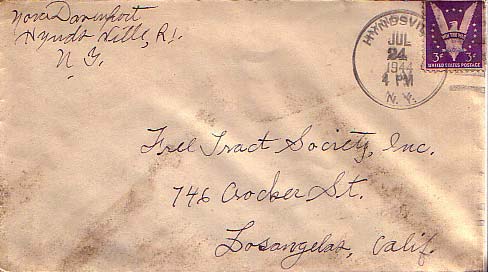 Nora Davenport
Hynds Ville, R1.
N. Y.
HYNDSVILLE
JUL
24
1944
4 PM
N. Y.
WIN THE WAR
3¢ 3¢
UNITED STATES POSTAGE
Free Tract Society, Inc.
746 Crocker St.
Losangelas, Calif.